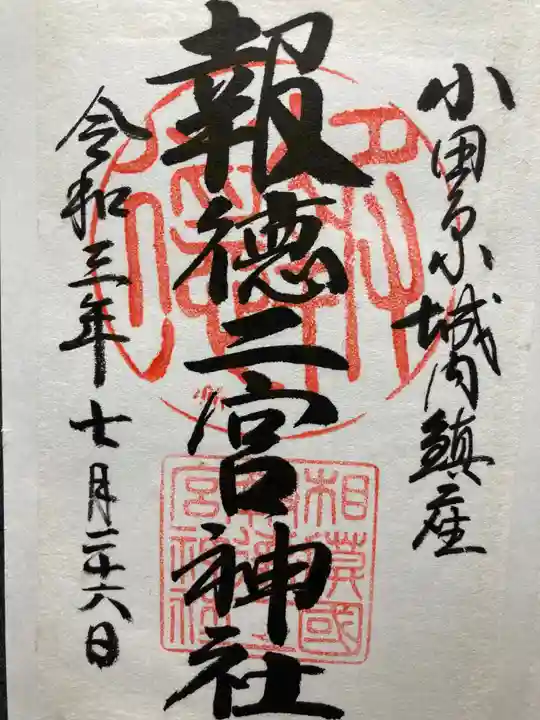 小田原城内鎮座
報徳二宮神社
令和三年七月二十六日
相模國